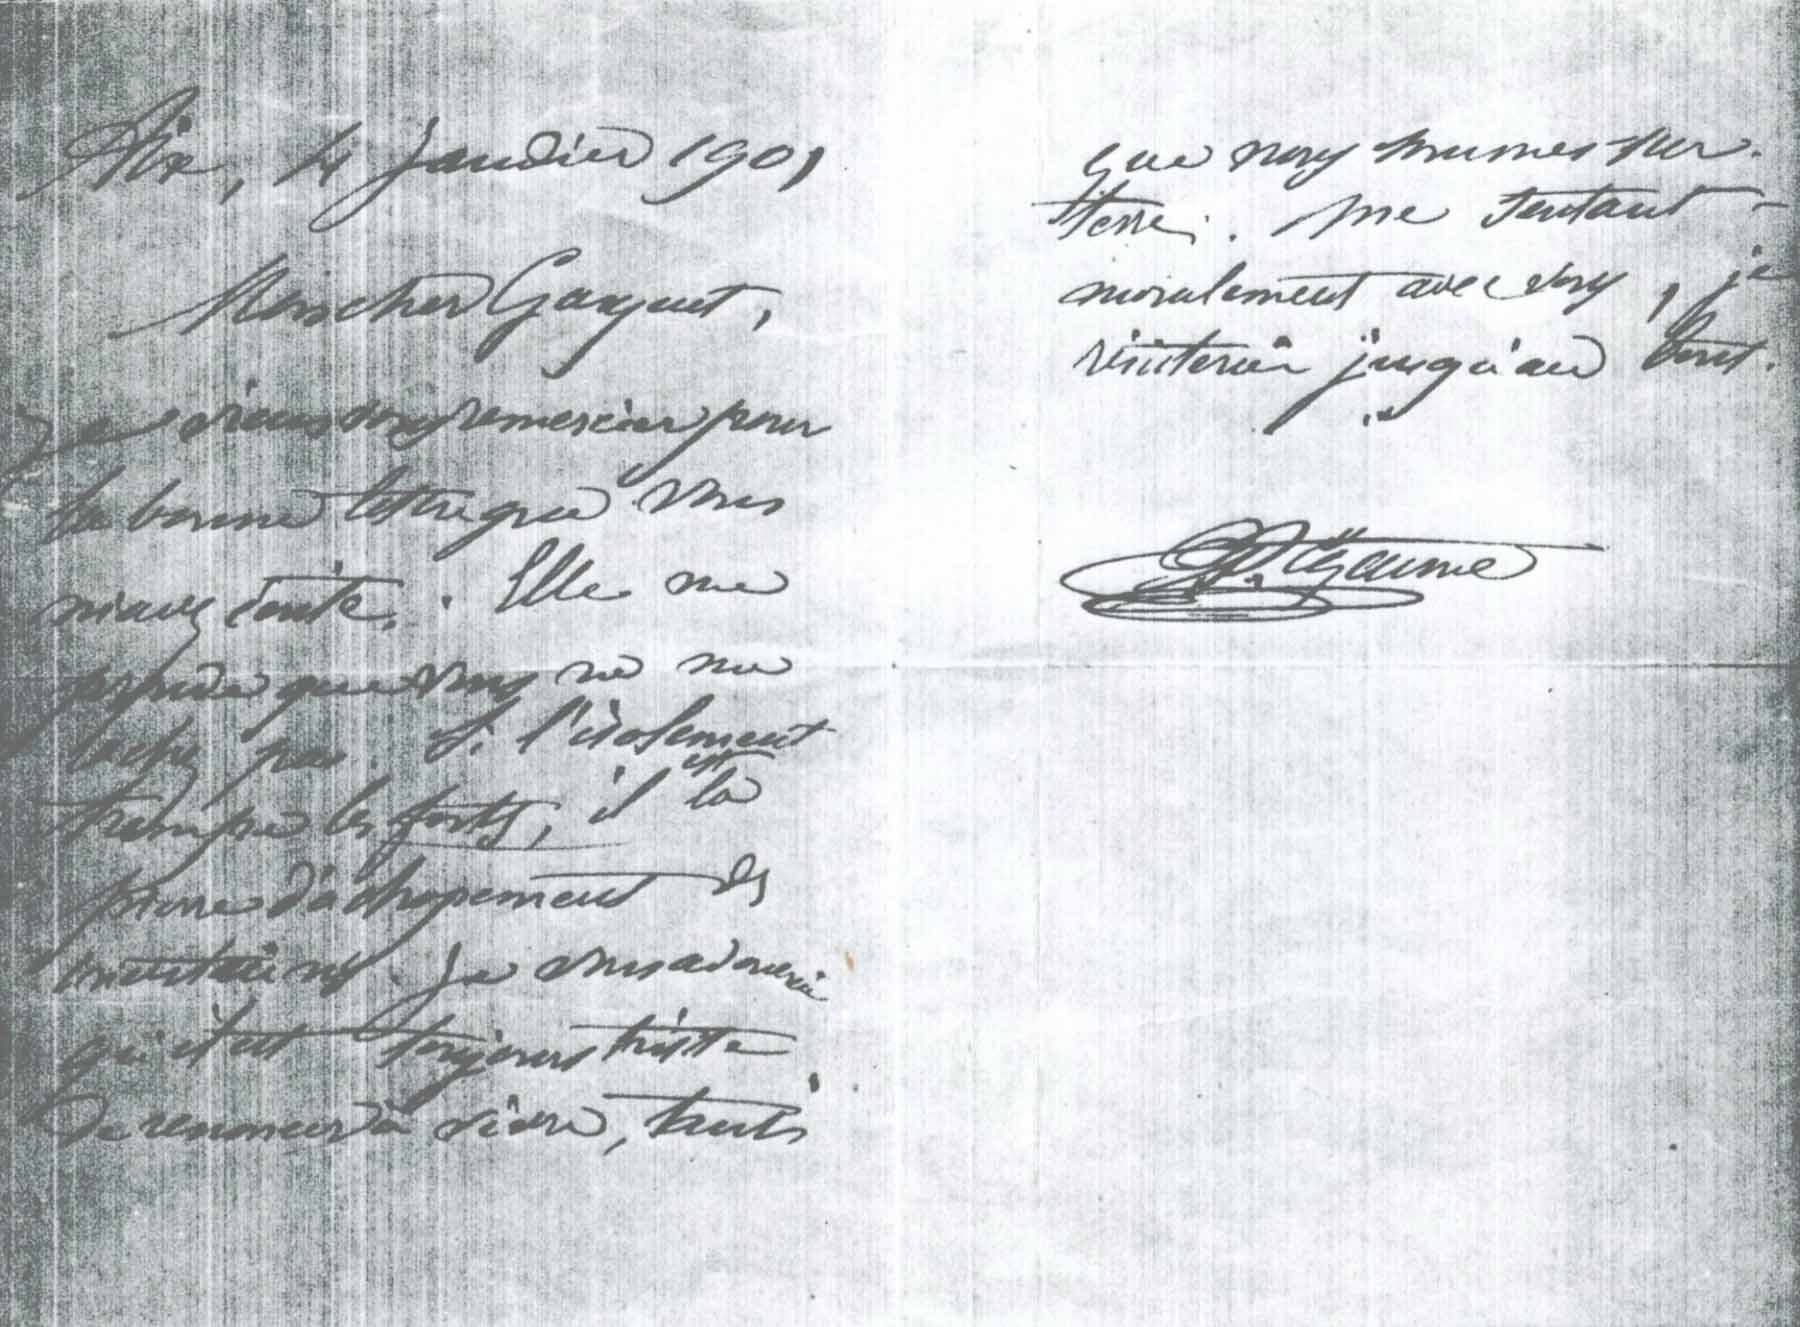 Aix, 4 janvier 1901
Mon cher Gasquet,
Je viens vous remercier pour
la bonne lettre que vous
m'avez écrite. Elle me
prouve que vous ne me
lachez pas. Si l'isolement
trempe les forts, il est la
pierre d'achopement des
incertains. Je vous avouerai
qu'il est toujours triste
de renoncer à vivre, tant
que nous sommes sur
terre. Me sentant
moralement avec vous, je
résisterai jusqu'au bout.
P. Cézanne